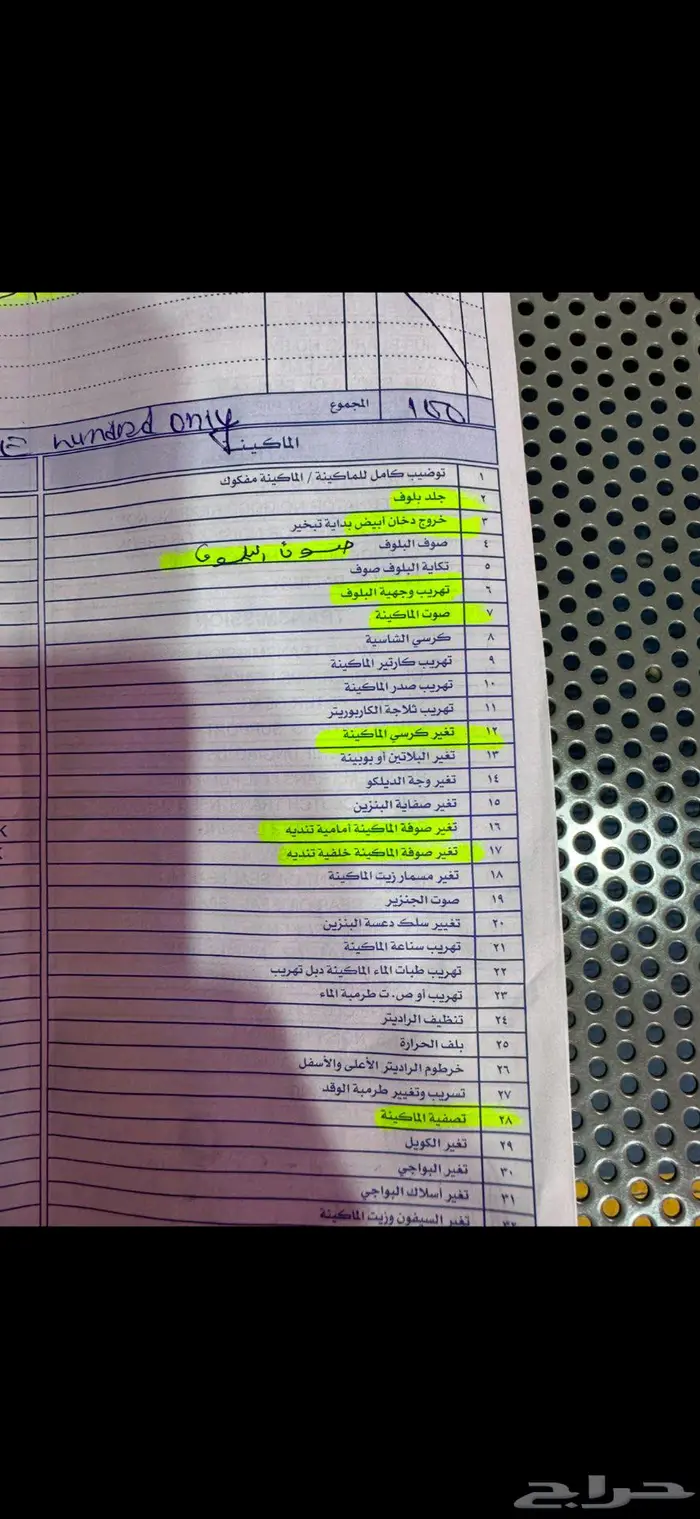 المجموع 100
hundred only
الماكينة
١ توضيب كامل للماكينة / الماكينة مفكوك
٢ جلد بلوف
٣ خروج دخان أبيض بداية تبخير
٤ صوف البلوف صوت البلوف
٥ تكاية البلوف صوف
٦ تهريب وجهية البلوف
٧ صوت الماكينة
٨ كرسي الشاسية
٩ تهريب كارتير الماكينة
١٠ تهريب صدر الماكينة
١١ تهريب ثلاجة الكاربوريتر
١٢ تغير كرسي الماكينة
١٣ تغير البلاتين أو بوبينة
١٤ تغير وجة الديلكو
١٥ تغير صفاية البنزين
١٦ تغير صوفة الماكينة أمامية تنديه
١٧ تغير صوفة الماكينة خلفية تنديه
١٨ تغير مسمار زيت الماكينة
١٩ صوت الجنزير
٢٠ تغيير سلك دعسة البنزين
٢١ تهريب سناعة الماكينة
٢٢ تهريب طبات الماء الماكينة دبل تهريب
٢٣ تهريب أو ص.ت طرمبة الماء
٢٤ تنظيف الراديتر
٢٥ بلف الحرارة
٢٦ خرطوم الراديتر الأعلى والأسفل
٢٧ تسريب وتغيير طرمبة الوقد
٢٨ تصفية الماكينة
٢٩ تغير الكويل
٣٠ تغير البواجي
٣١ تغير أسلاك البواجي
٣٢ تغير السيفون وزيت الماكينة
حراج